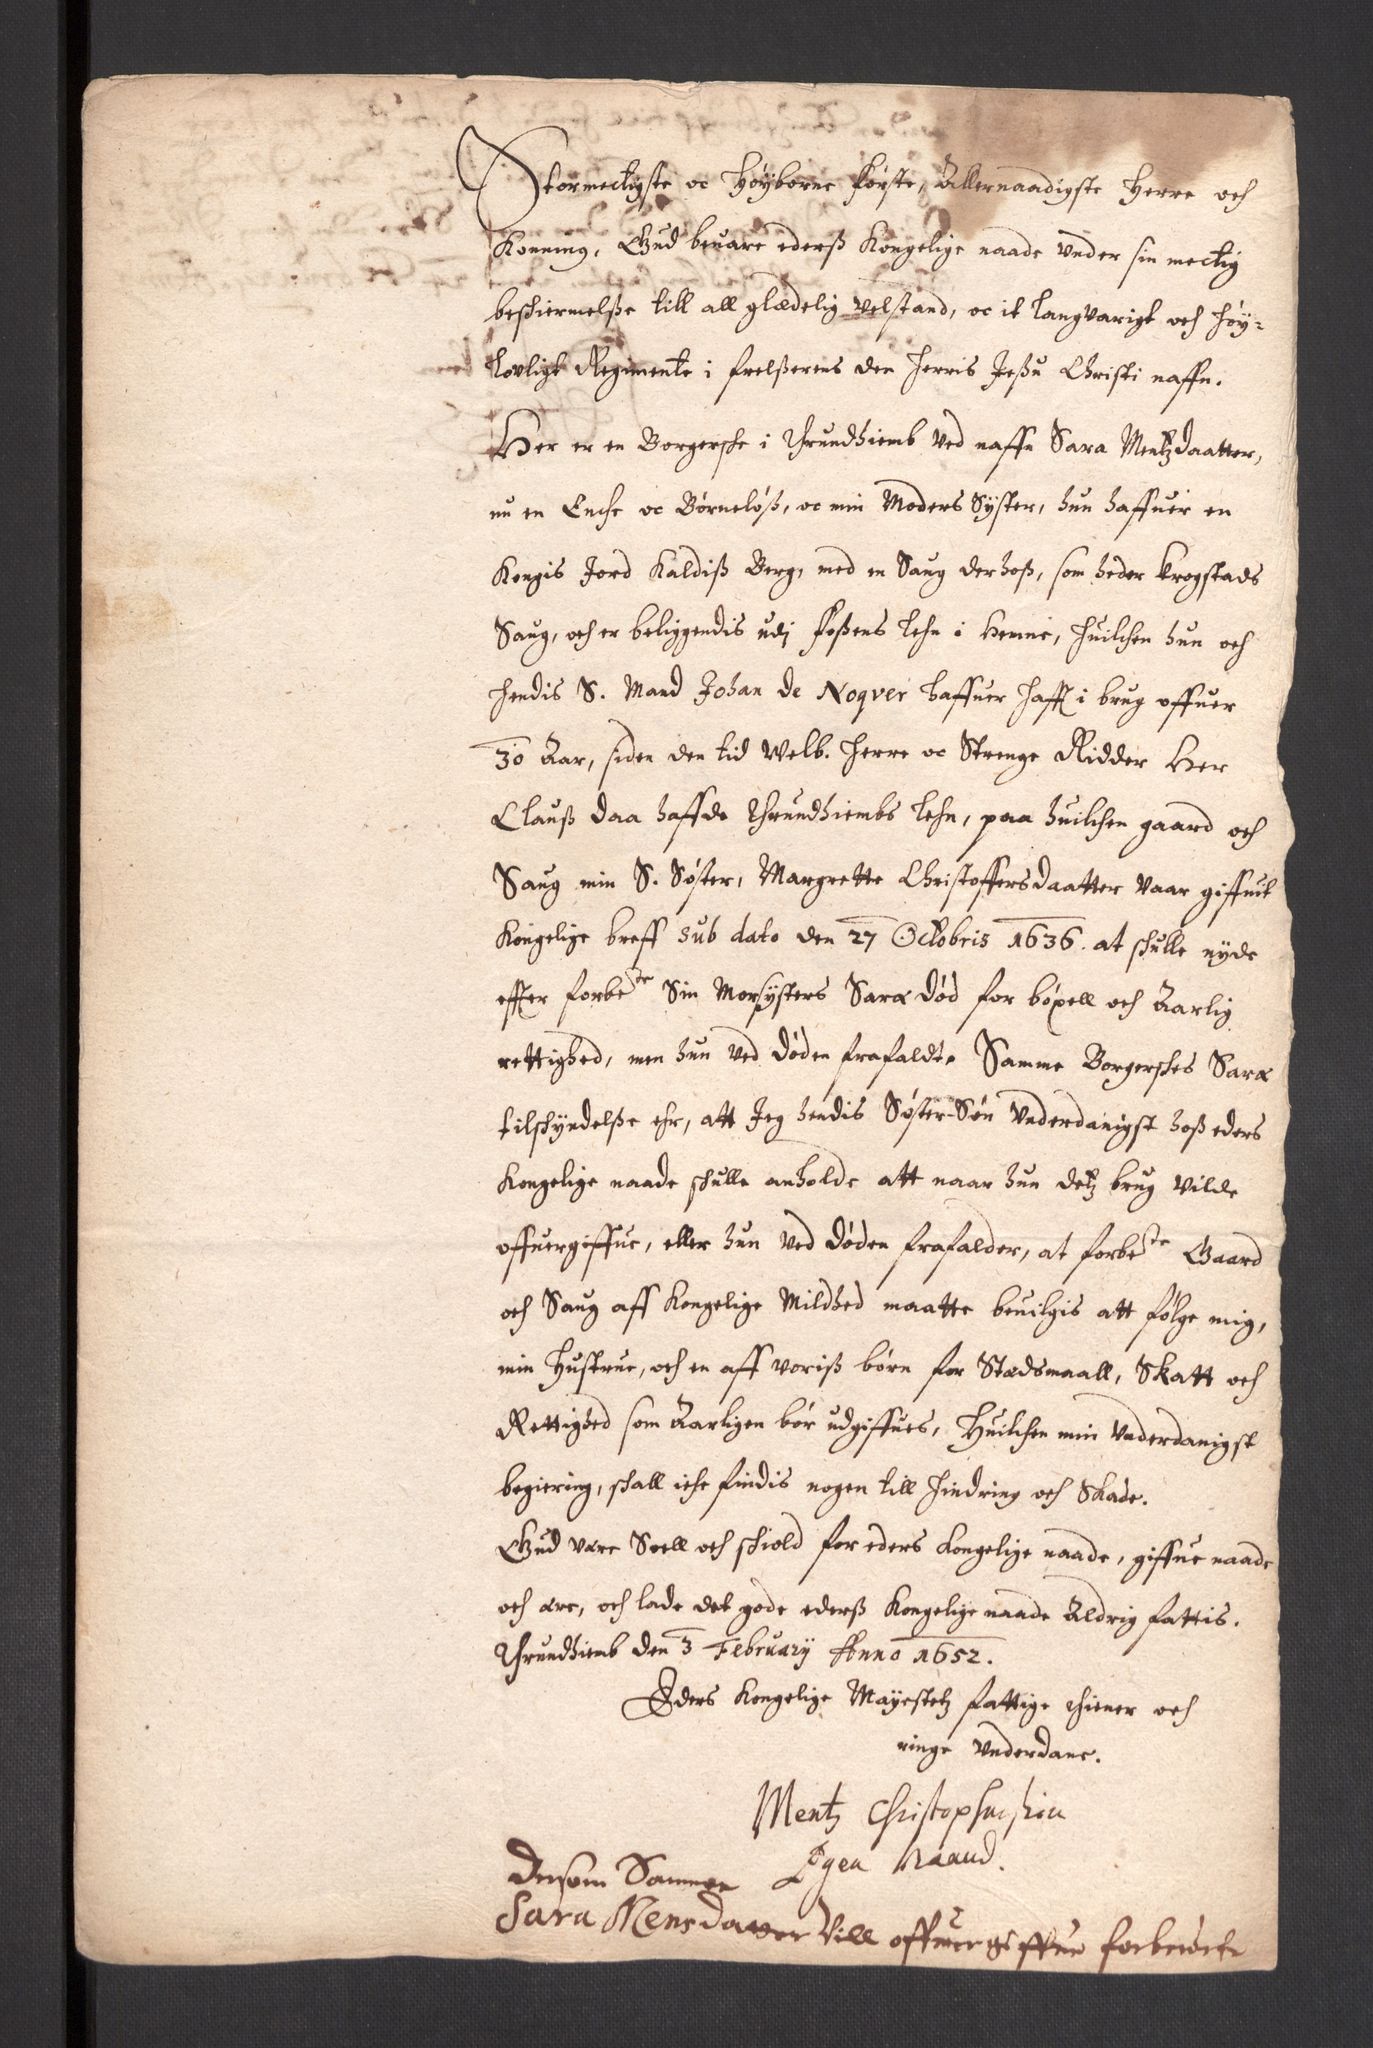 Stormectigste oc Höÿborne förste, Allernaadigste Herre och
Konning, Gud beuare ederß Kongelige naade vnder sin mectig
beskiermelße till all glædelig velstand, oc it langvarigt och höÿ-
lovligt Regimente i frelßerens den herris Jeßu Christi naffn.
Her er en Borgerske i Thrundhiemb ved naffn Sara Mentzdaatter,
nu en Encke oc Börnelöß, oc min Moders Sÿster, hun haffuer en
Kongis Jord Kaldiß Berg, med en Saug derhoß, som heder Krogstads
Saug, och er beliggendis udj foßens lehn i Hemne, huilchen hun och
hendis S. Mand Johan de Noqver haffuer hafft i brug offuer
30 Aar, siden den tid Welb. herre oc Strenge Ridder Her
Clauß Daa haffde Thrundhiembs lehn, paa huilchen gaard och
Saug min S. Söster, Margrette Christoffersdaatter vaar giffuit
Kongelige breff sub dato den 27 Octobris 1636. at skulle nÿde
effter forbe^te Sin Morsÿsters Saræ död for böxell och Aarlig
rettighed, men hun ved döden frafaldt. Samme Borgerskes Saræ
tilskÿndelße ehr, att Jeg hendis Söster-Sön vnderdanigst hoß eders
Kongelige naade skulle anholde att naar hun detz brug vilde
offuergiffue, eller hun ved döden frafalder, at forbe^te Gaard
och Saug aff Kongelige Mildhed maatte beuilgis att fölge mig,
min hustrue, och en aff voriß börn for Stædsmaall, Skatt och
Rettighed som Aarligen bör udgiffues, Huilchen min vnderdanigst
begiering, skall iche findis nogen till hindring och Skade.
Gud være Soell och skiold for eders Kongelige naade, giffue naade
och ære, och lade det gode ederß Kongelige naade Aldrig fattis.
Thrundhiemb den 3 Februarÿ Anno 1652.
Eders Kongelige Maÿestetz fattige thiener och
ringe vnderdane.
Mentz Christophersen
Egen haand.
Dersom Samme
Sara Mensdatter vill offuergiffue forberørte